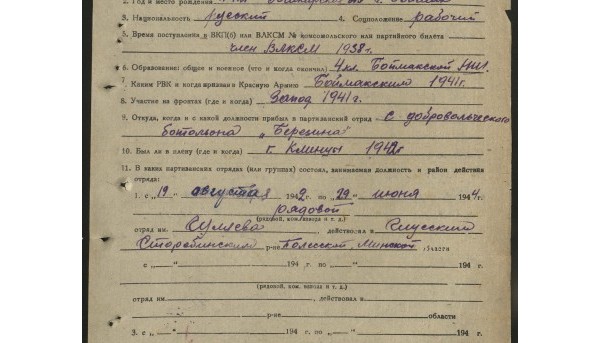 2. Год и место рождения
3. Национальность русский 4. Соцположение рабочий
5. Время поступления в ВКП(б) или ВЛКСМ № комсомольского или партийного билета
член ВЛКСМ 1938 г.
6. Образование: общее и военное (что и когда окончил) 4 кл. Боймакской НШ.
7. Каким РВК и когда призван в Красную Армию Боймакским 1941 г.
8. Участие на фронтах (где и когда) Запад 1941 г.
9. Откуда, когда и с какой должности прибыл в партизанский отряд с добровольческого
батольона „Березина"
10. Был ли в плену (где и когда) г. Клинцы 1942 г
11. В каких партизанских отрядах (или группах) состоял, занимаемая должность и район действия
отряда:
1. с „19 августа 1942 г по „29 июня 1944 г.
рядовой
(рядовой, ком. звена и т. д.)
отряд им. Суляева, действовал в Глусский
Старобинским р-не Полесской, Минской области
с „ „ 194 г. по „ „ 194 г.
(рядовой, ком. взвода и т. д.)
отряд им. , действовал в
р-не области
3. с „ „ 194 г. по „ „ 194 г.